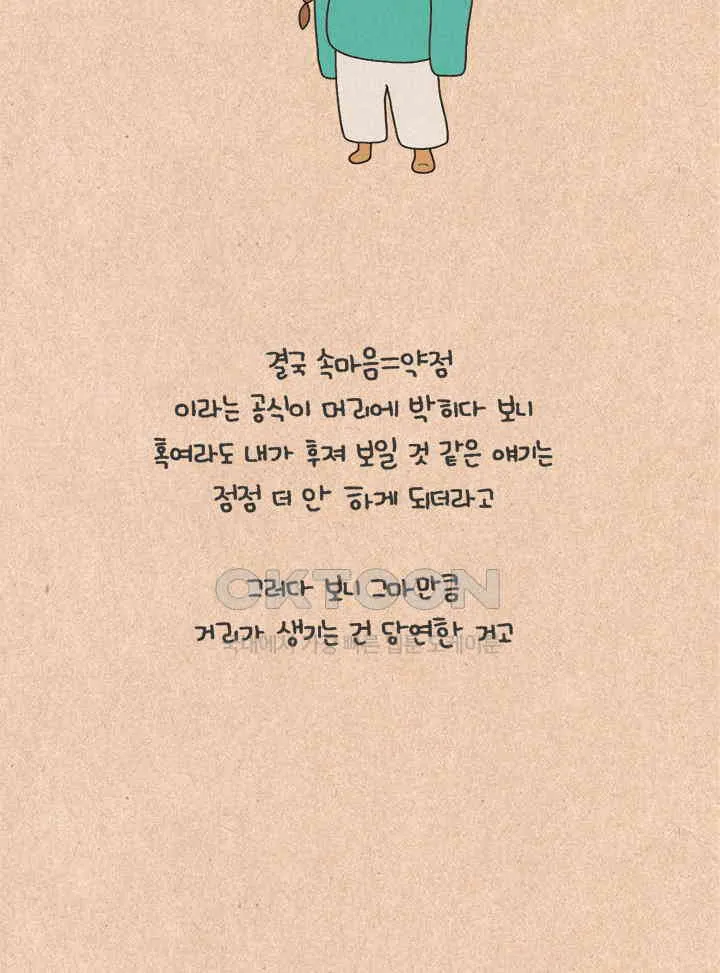 결국 속마음=약점
이라는 공식이 머리에 박히다 보니
혹여라도 내가 후져 보일 것 같은 얘기는
점점 더 안 하게 되더라고
OKTOON
그러다 보니 그마만큼
거리가 생기는 건 당연한 거고
국내에서 가장 빠른 웹툰 오케이툰